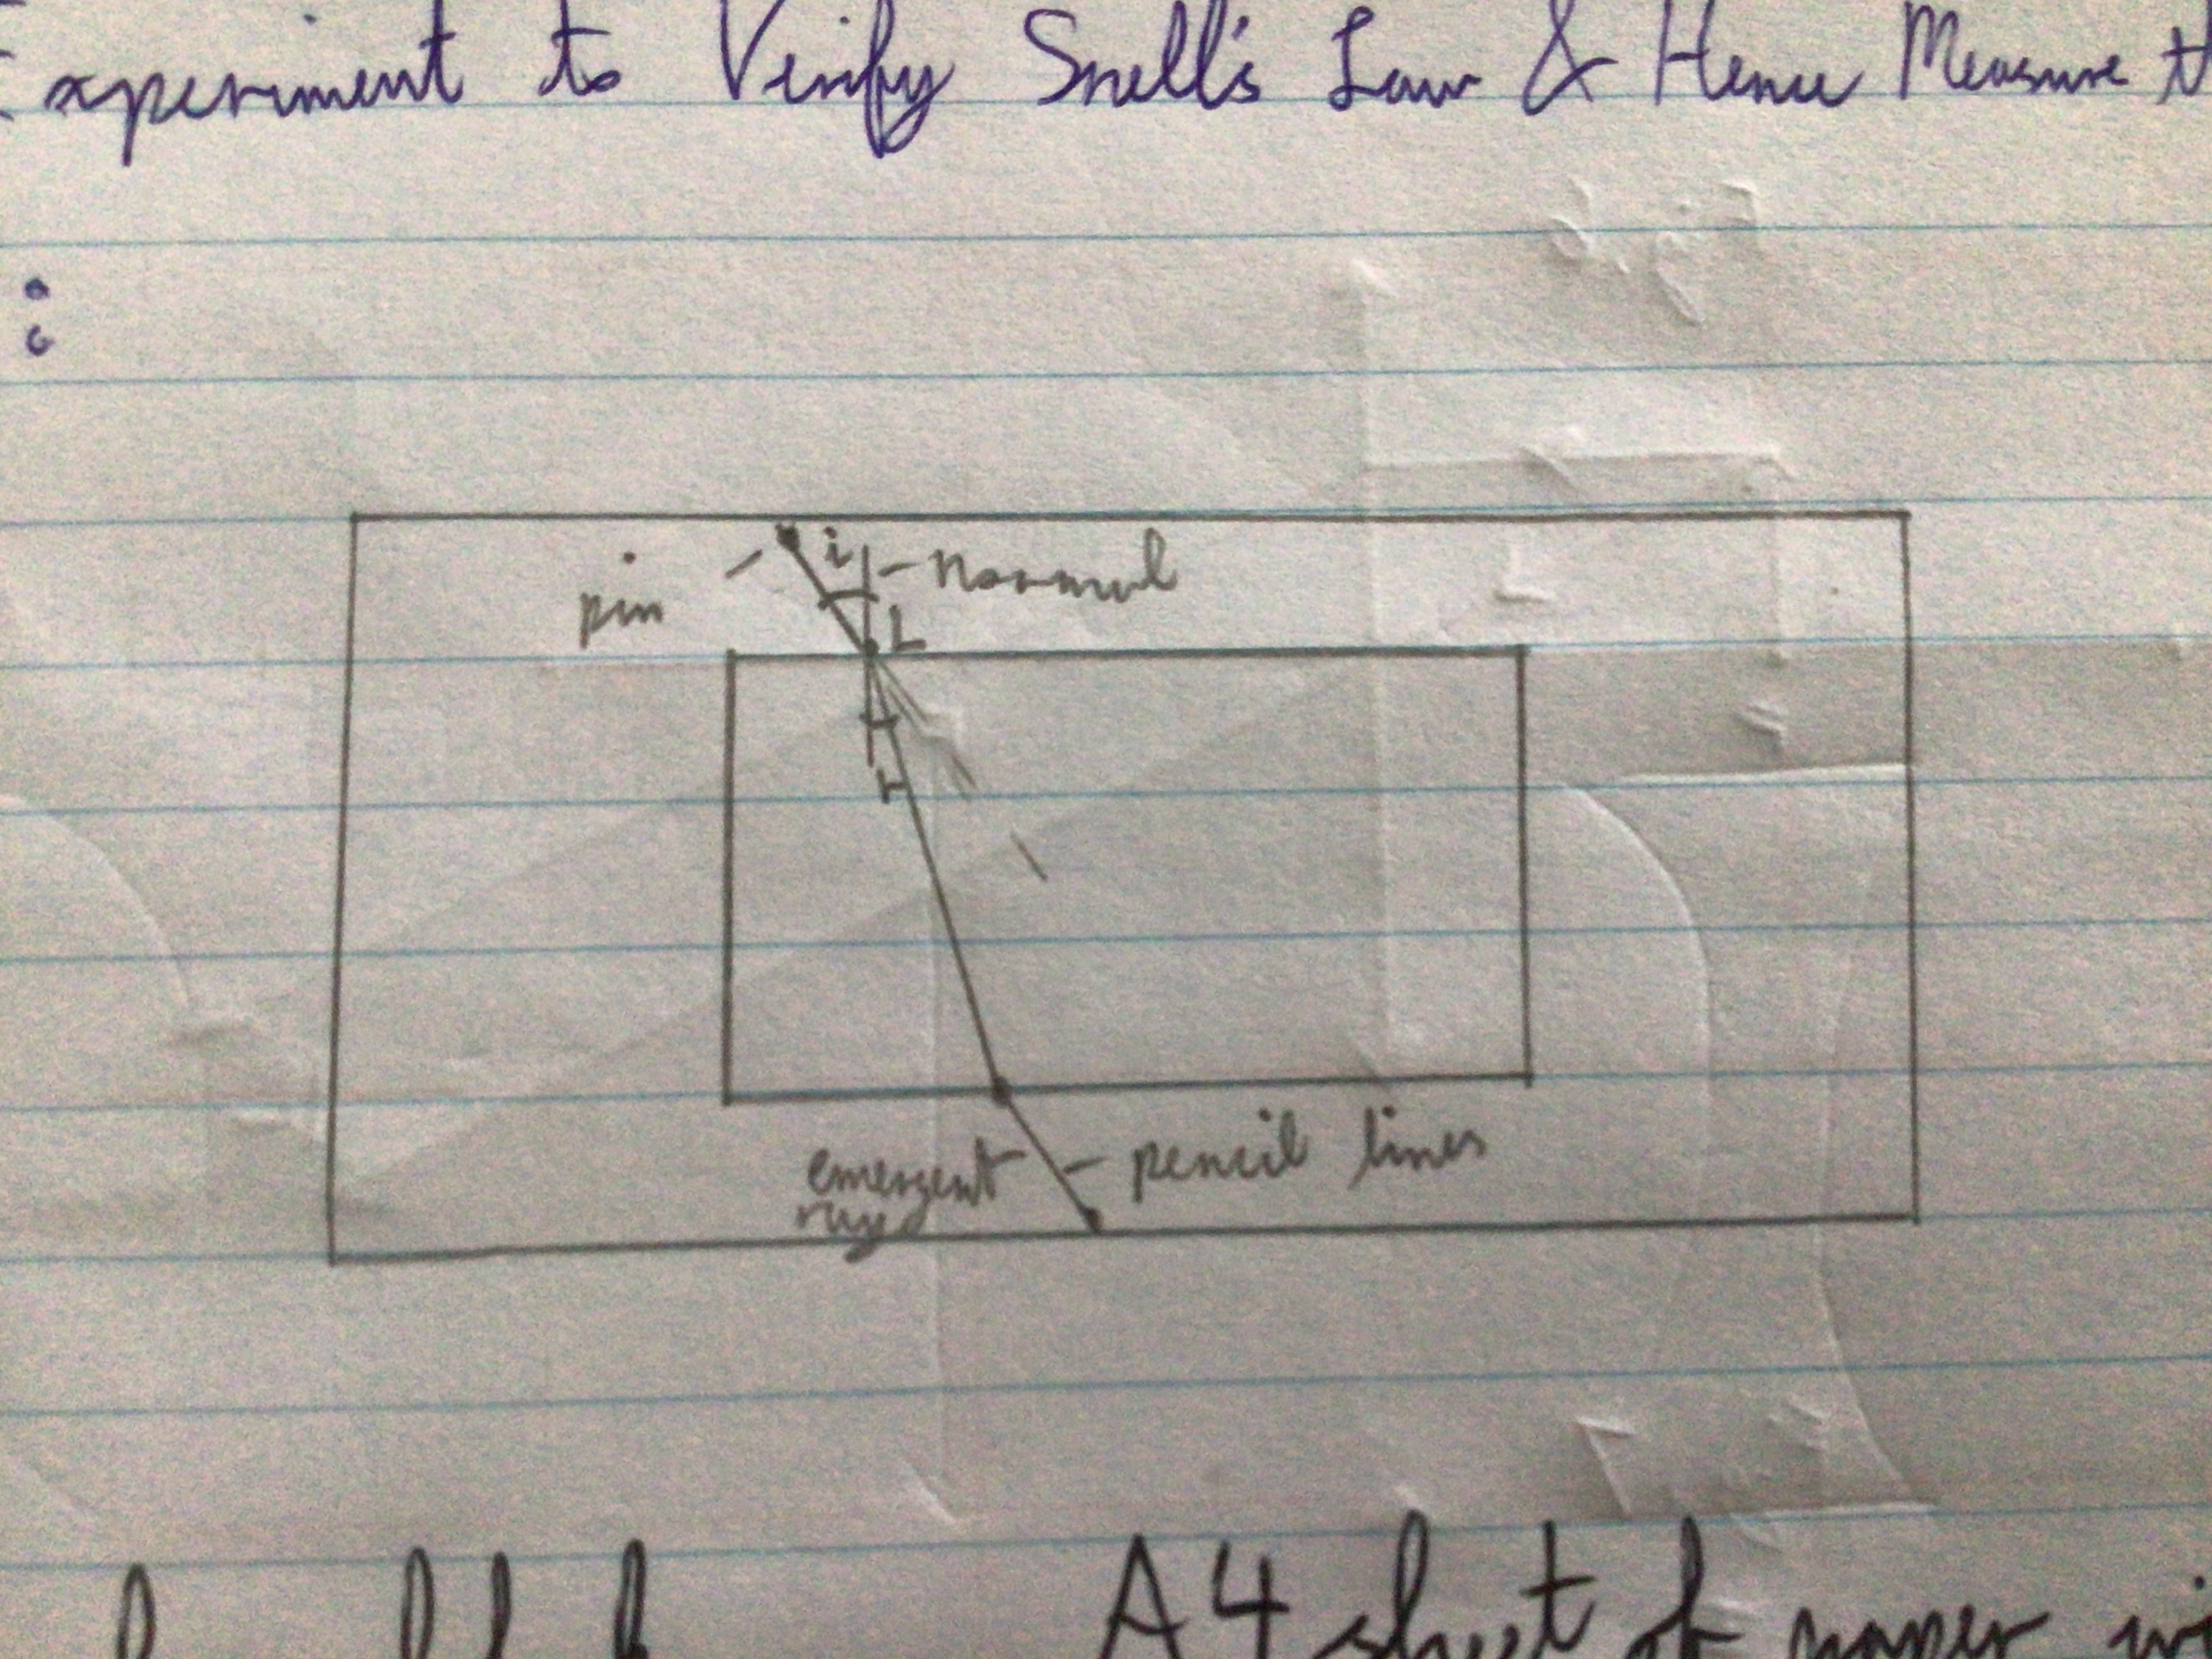 Experiment to Verify Snell's Law & Hence Measure
:
i
normal
pin
L
r
emergent
ray
pencil lines
A4 sheet of paper